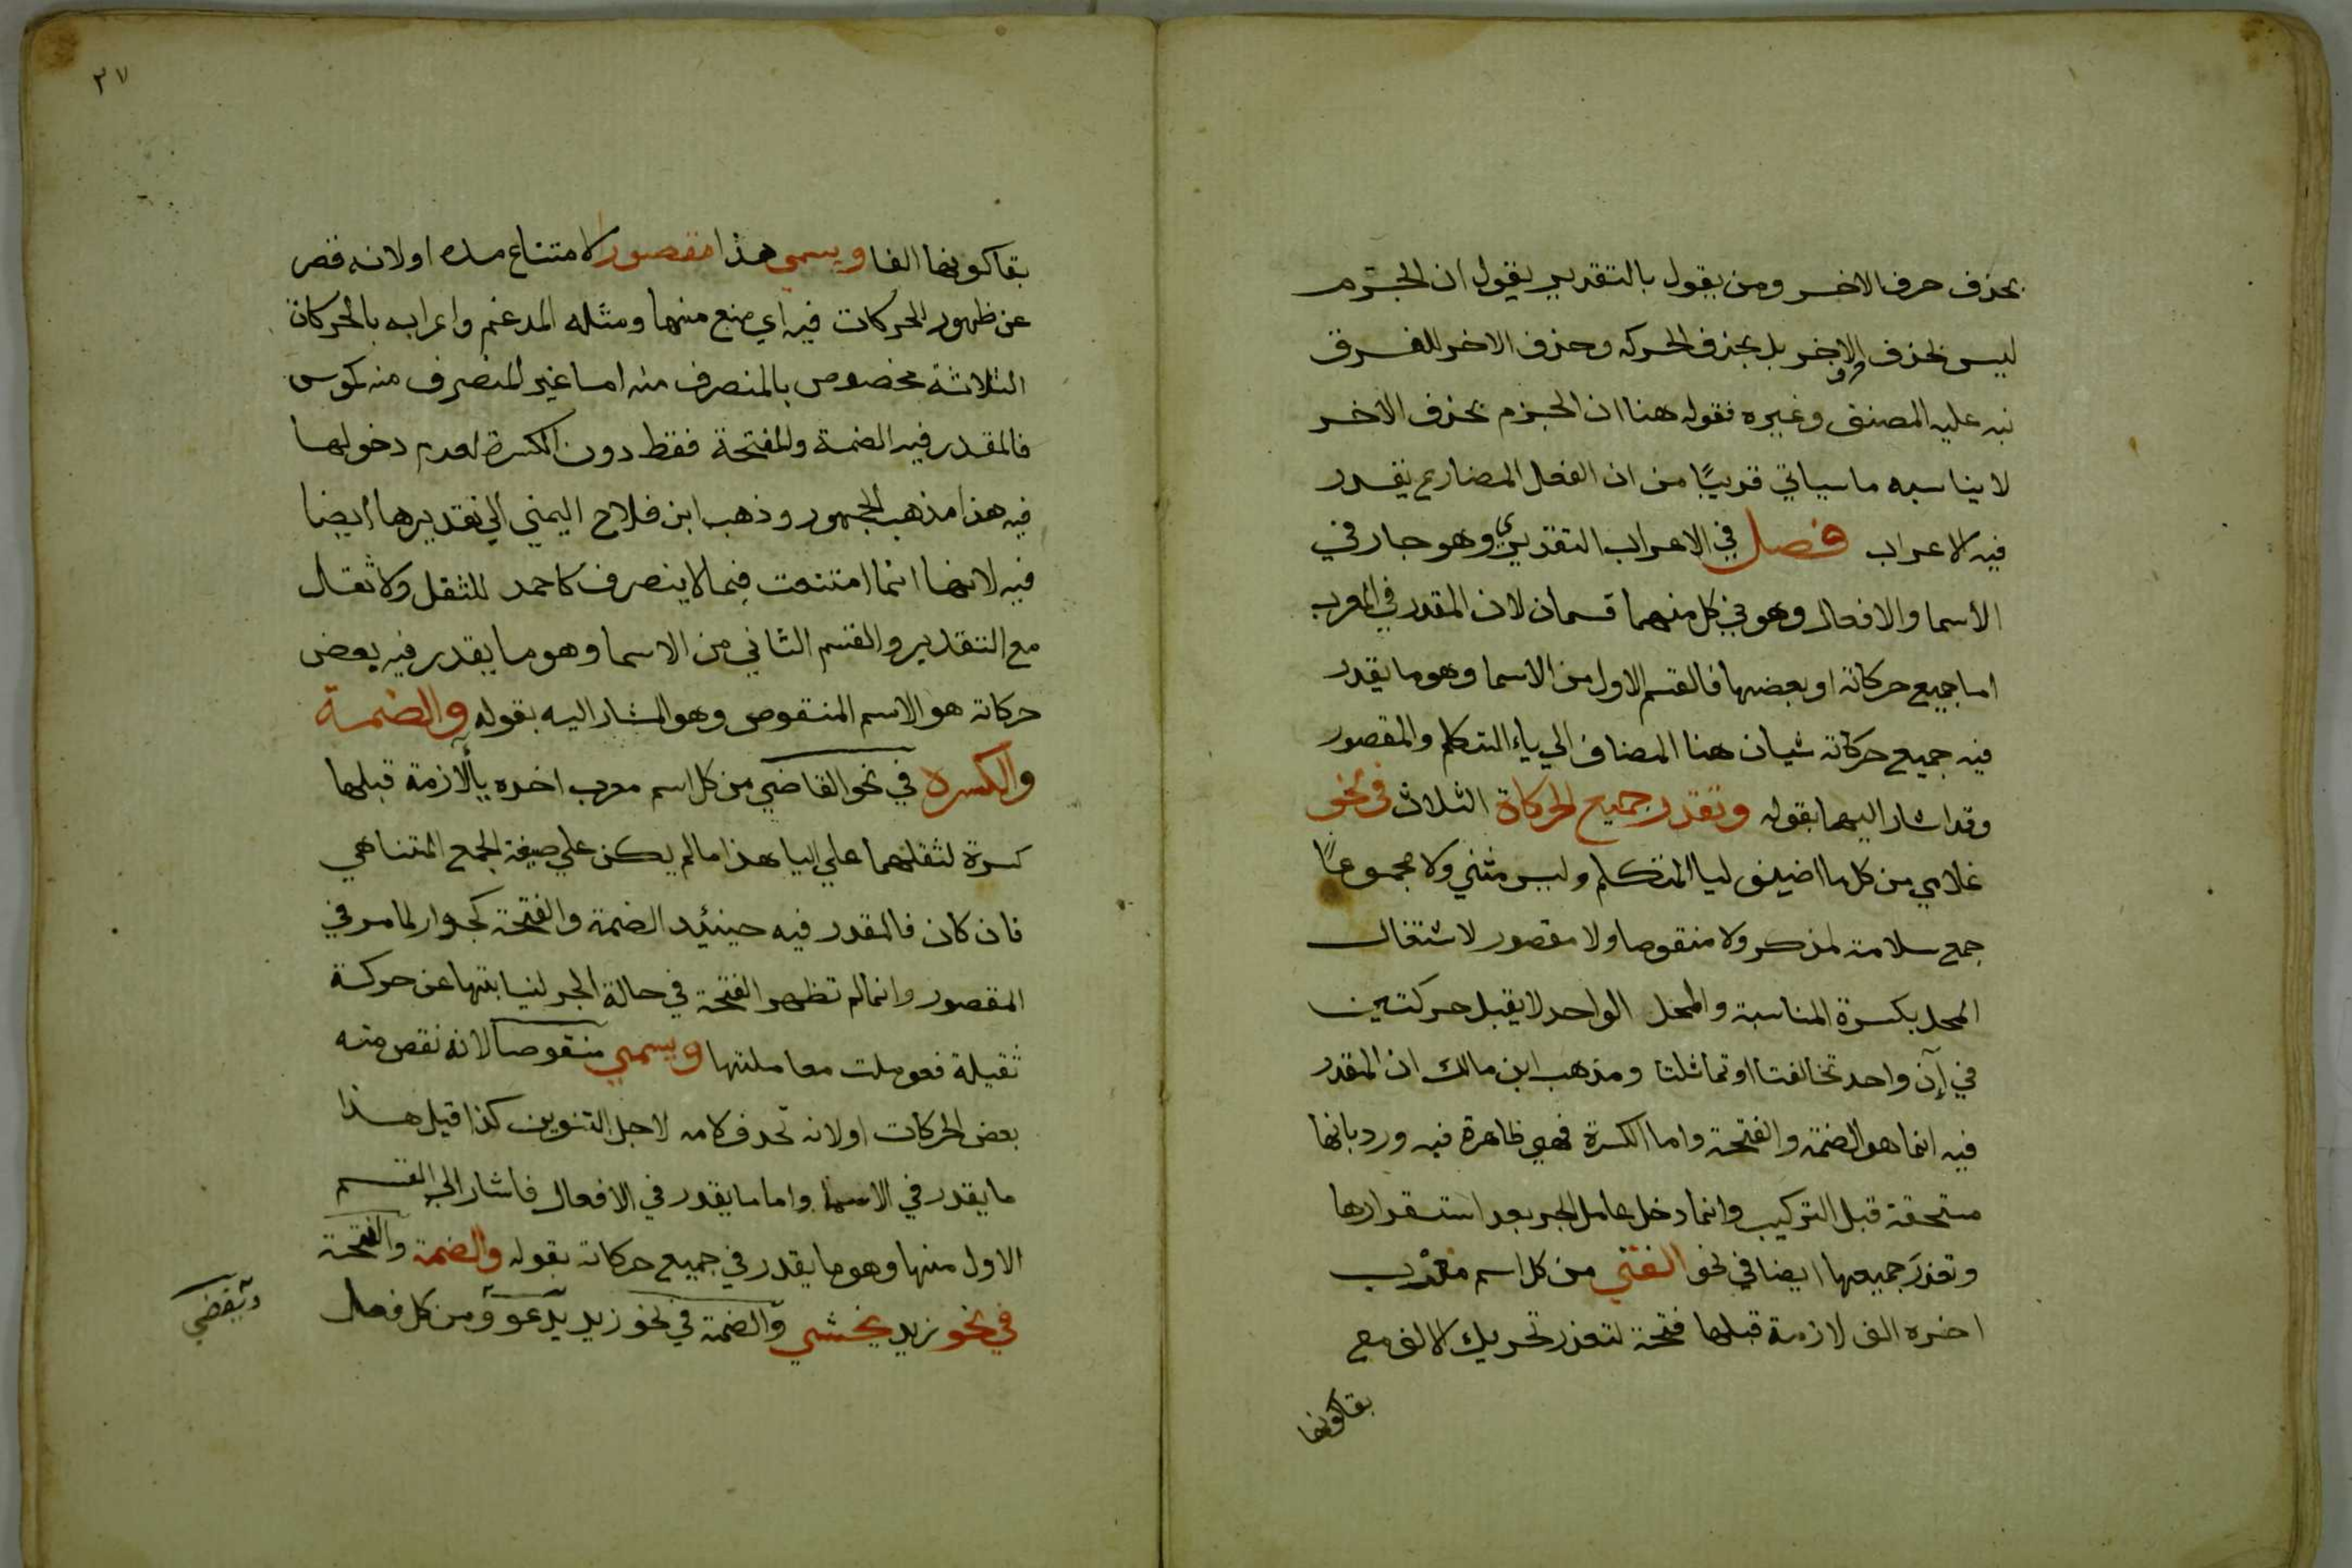 بحذف حرف الاخر ومن يقول بالتقدير يقول ان الجزم
ليس بحذف الاخر بل بحذف الحركه وحذف الاخر للفرق
نبه عليه المصنف وغيره فقوله هنا ان الجزم بحذف الاخر
لا يناسبه ما سياتي قريبًا من ان الفعل المضارع يقدر
فيه الاعراب فصل في الاعراب التقديري وهو جار في
الأسما والافعال وهو في كل منهما قسمان لان المقدر في المعرب
اما جميع حركاته او بعضها فالقسم الاول من الاسما وهو ما يقدر
فيه جميع حركاته شيان هنا المضاف الي ياء المتكلم والمقصور
وقد اشار اليهما بقوله وتقدر جميع الحركاة الثلاث في نحو
غلامي من كل ما اضيف ليا المتكلم وليس مثني ولا مجموعًا
جمع سلامة لمذكر ولا منقوصا ولا مقصور لاشتغال
المحل بكسرة المناسبة والمحل الواحد لا يقبل حركتين
في آن واحد تخالفتا او تماثلتا ومذهب ابن مالك ان المقدر
فيه انما هو الضمة والفتحة واما الكسرة فهي ظاهرة فيه ورد بانها
مستحقة قبل التركيب وانما دخل عامل الجر بعد استقرارها
وتعذر جميعها ايضا في نحو الفتي من كل اسم معرب
اخره الف لازمة قبلها فتحة لتعذر تحريك الالف مع
بقا كونها
٢٧
بقا كونها الفا ويسمي هذا مقصورا لامتناع مده او لانه قصر
عن ظهور الحركات فيه اي منع منها ومثله المدغم واعرابه بالحركات
الثلاثة مخصوص بالمنصرف منه اما غير المنصرف منه كموسي
فالمقدر فيه الضمة والفتحة فقط دون الكسرة لعدم دخولها
فيه هذا مذهب الجمهور وذهب ابن فلاح اليمني الي تقديرها ايضا
فيه لانها انما امتنعت فيما لا ينصرف كاحمد للثقل ولا ثقال
مع التقدير والقسم الثاني من الاسما وهو ما يقدر فيه بعض
حركاته هو الاسم المنقوص وهو المشار اليه بقوله والضمة
والكسرة في نحو القاضي من كل اسم معرب اخره يا لازمة قبلها
كسرة لثقلهما علي اليا هذا ما لم يكن علي صيغة الجمع المتناهي
فان كان فالمقدر فيه حينئيد الضمة والفتحة كجوار لما مر في
المقصور وانما لم تظهر الفتحة في حالة الجر لنيابتها عن حركة
ثقيلة فعوملت معاملتها ويسمي منقوصا لانه نقص منه
بعض الحركات او لانه تحدف لامه لاجل التنوين كذا قيل هذا
ما يقدر في الاسما واما ما يقدر في الافعال فاشار الي القسم
الاول منها وهو ما يقدر في جميع حركاته بقوله والضمة والفتحة
في نحو زيد يخشي والضمة في نحو زيد يدعو ومن كل فعل
ويقضي